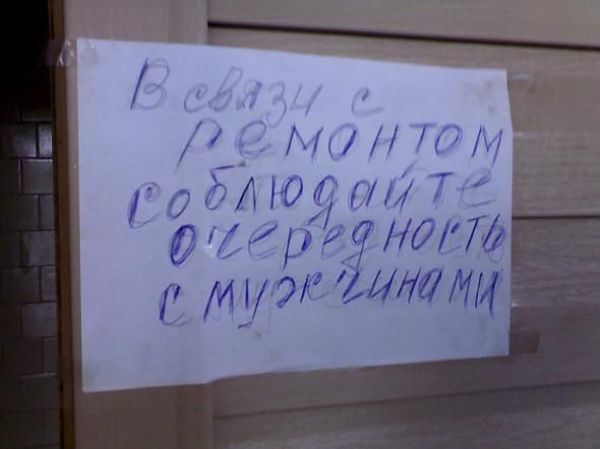 В связи с
ремонтом
соблюдайте
очередность
с мужчинами